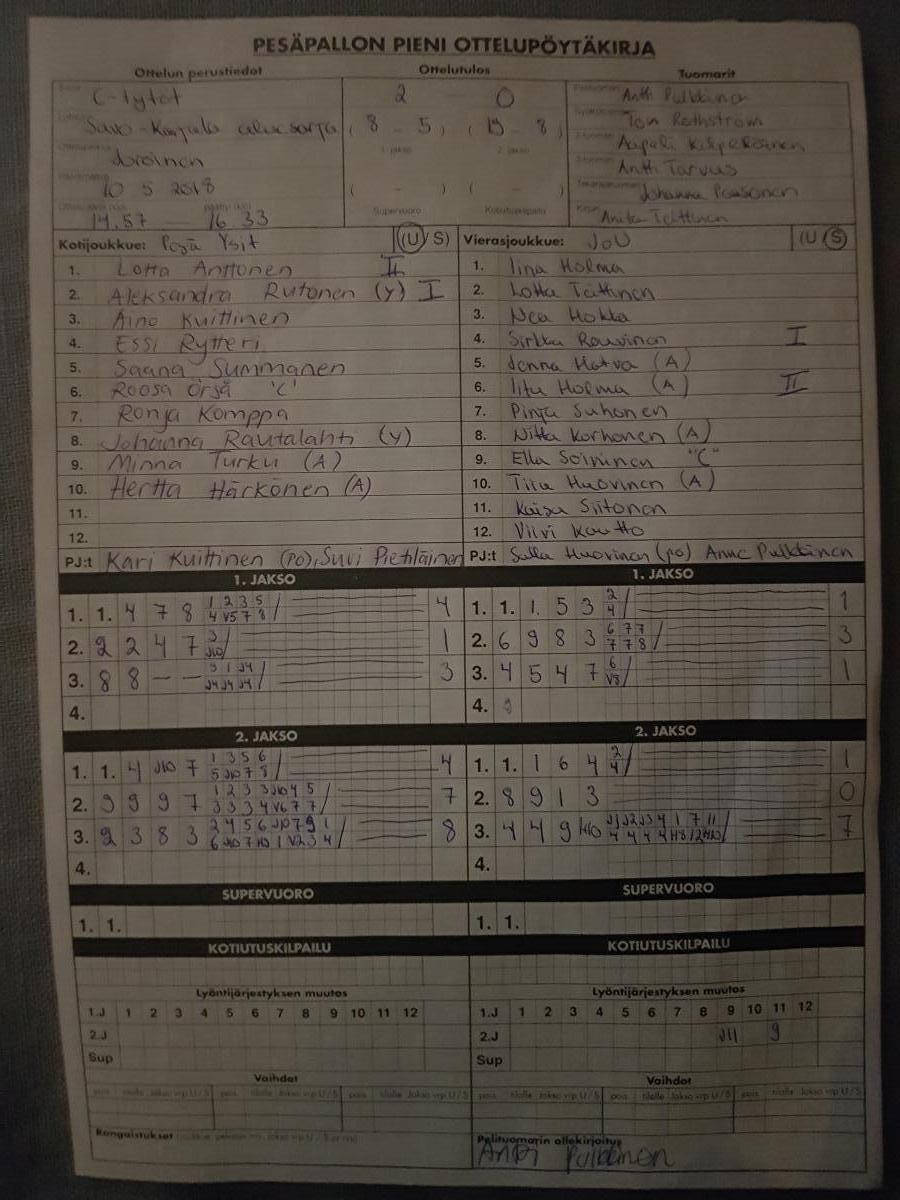 PESÄPALLON PIENI OTTELUPÖYTÄKIRJA
Ottelun perustiedot Ottelutulos Tuomarit
C-tytöt 2 0 Antti Pulkkinen
Savo-Karjala aluesarja ( 8 - 5 ) ( 19 - 8 ) Tom Rothström
1. jakso 2. jakso Aapeli
Joroinen Antti Tarvus
10 5 2018 ( - ) ( - ) Johanna
14.57 16 33 Supervuoro Kotiutuskilpailu Anita Teittinen
Kotijoukkue: Pesä Ysit (U/S) Vierasjoukkue: JoU (U/S)
1. Lotta Anttonen II 1. Iina Holma
2. Aleksandra Rutonen (y) I 2. Lotta
3. Aino Kuittinen 3. Nea Hokka
4. Essi Rytteri 4. Sirkku Rouvinen I
5. Saana Summanen 5. Jenna Hatva (A)
6. Roosa Örså 'C' 6. Iitu Holma (A) II
7. Ronja Komppa 7. Pinja Suhonen
8. Johanna Rautalahti (y) 8. Nitta Korhonen (A)
9. Minna Turku (A) 9. Ella Soininen "C"
10. Hertta Härkönen (A) 10. Tiia Huovinen (A)
11. 11. Kaisa Siitonen
12. 12. Vilvi Koutto
PJ:t Kari Kuittinen (po), Suvi Pietiläinen PJ:t Salla Huovinen (po) Anne Pulkkinen
1. JAKSO 1. JAKSO
1 2 3 5 2
1. 1. 4 7 8 4 V5 7 8 / 4 1. 1. 1 5 3 4 / 1
3 6 7 7
2. 2 2 4 7 J10 / 1 2. 6 9 8 3 7 7 8 / 3
3 1 J4 6
3. 8 8 - - J4 J4 J4 / 3 3. 4 5 4 7 V8 / 1
4. 4. 9
2. JAKSO 2. JAKSO
1 3 5 6 2
1. 1. 4 J10 7 5 J10 7 8 / 4 1. 1. 1 6 4 4 / 1
1 2 3 3 J10 4 5
2. 9 9 9 7 3 3 3 4 V6 7 7 / 7 2. 8 9 1 3 0
2 4 5 6 J10 7 9 1 J1 J2 J3 4 1 7 11
3. 2 3 8 3 6 J10 7 10 1 V2 3 4 / 8 3. 4 4 9 4 4 4 4 / 7
4. 4.
SUPERVUORO SUPERVUORO
1. 1. 1. 1.
KOTIUTUSKILPAILU KOTIUTUSKILPAILU
Lyöntijärjestyksen muutos Lyöntijärjestyksen muutos
1.J 1 2 3 4 5 6 7 8 9 10 11 12 1.J 1 2 3 4 5 6 7 8 9 10 11 12
2.J 2.J J11 9
Sup Sup
Vaihdot Vaihdot
pois tilalle Jakso vrp U/S pois tilalle Jakso vrp U/S pois tilalle Jakso vrp U/S pois tilalle Jakso vrp U/S pois tilalle Jakso vrp U/S pois tilalle Jakso vrp U/S
Rangaistukset Pelituomarin allekirjoitus
Antti Pulkkinen